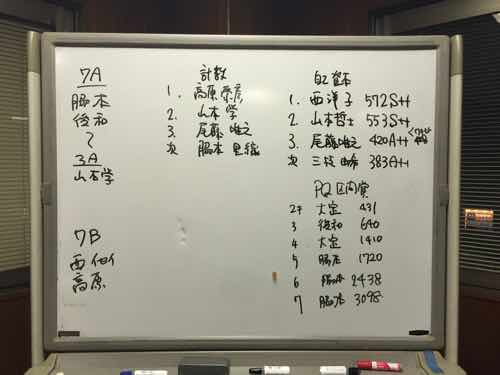 7A
脇本
後和
〜
3A
山本学
7B
西
高原
計数
1. 高原 崇彦
2. 山本 学
3. 尾藤 唯之
次 脇本 里織
1. 西 洋子 572S+H
2. 山本哲士 553S+H
3. 尾藤 唯之 420A+H
次 三枝 383A+H
PQ区間賞
2 大定 431
3 後和 640
4 大定 1410
5 脇本 1720
6 脇本 2438
7 脇本 3098